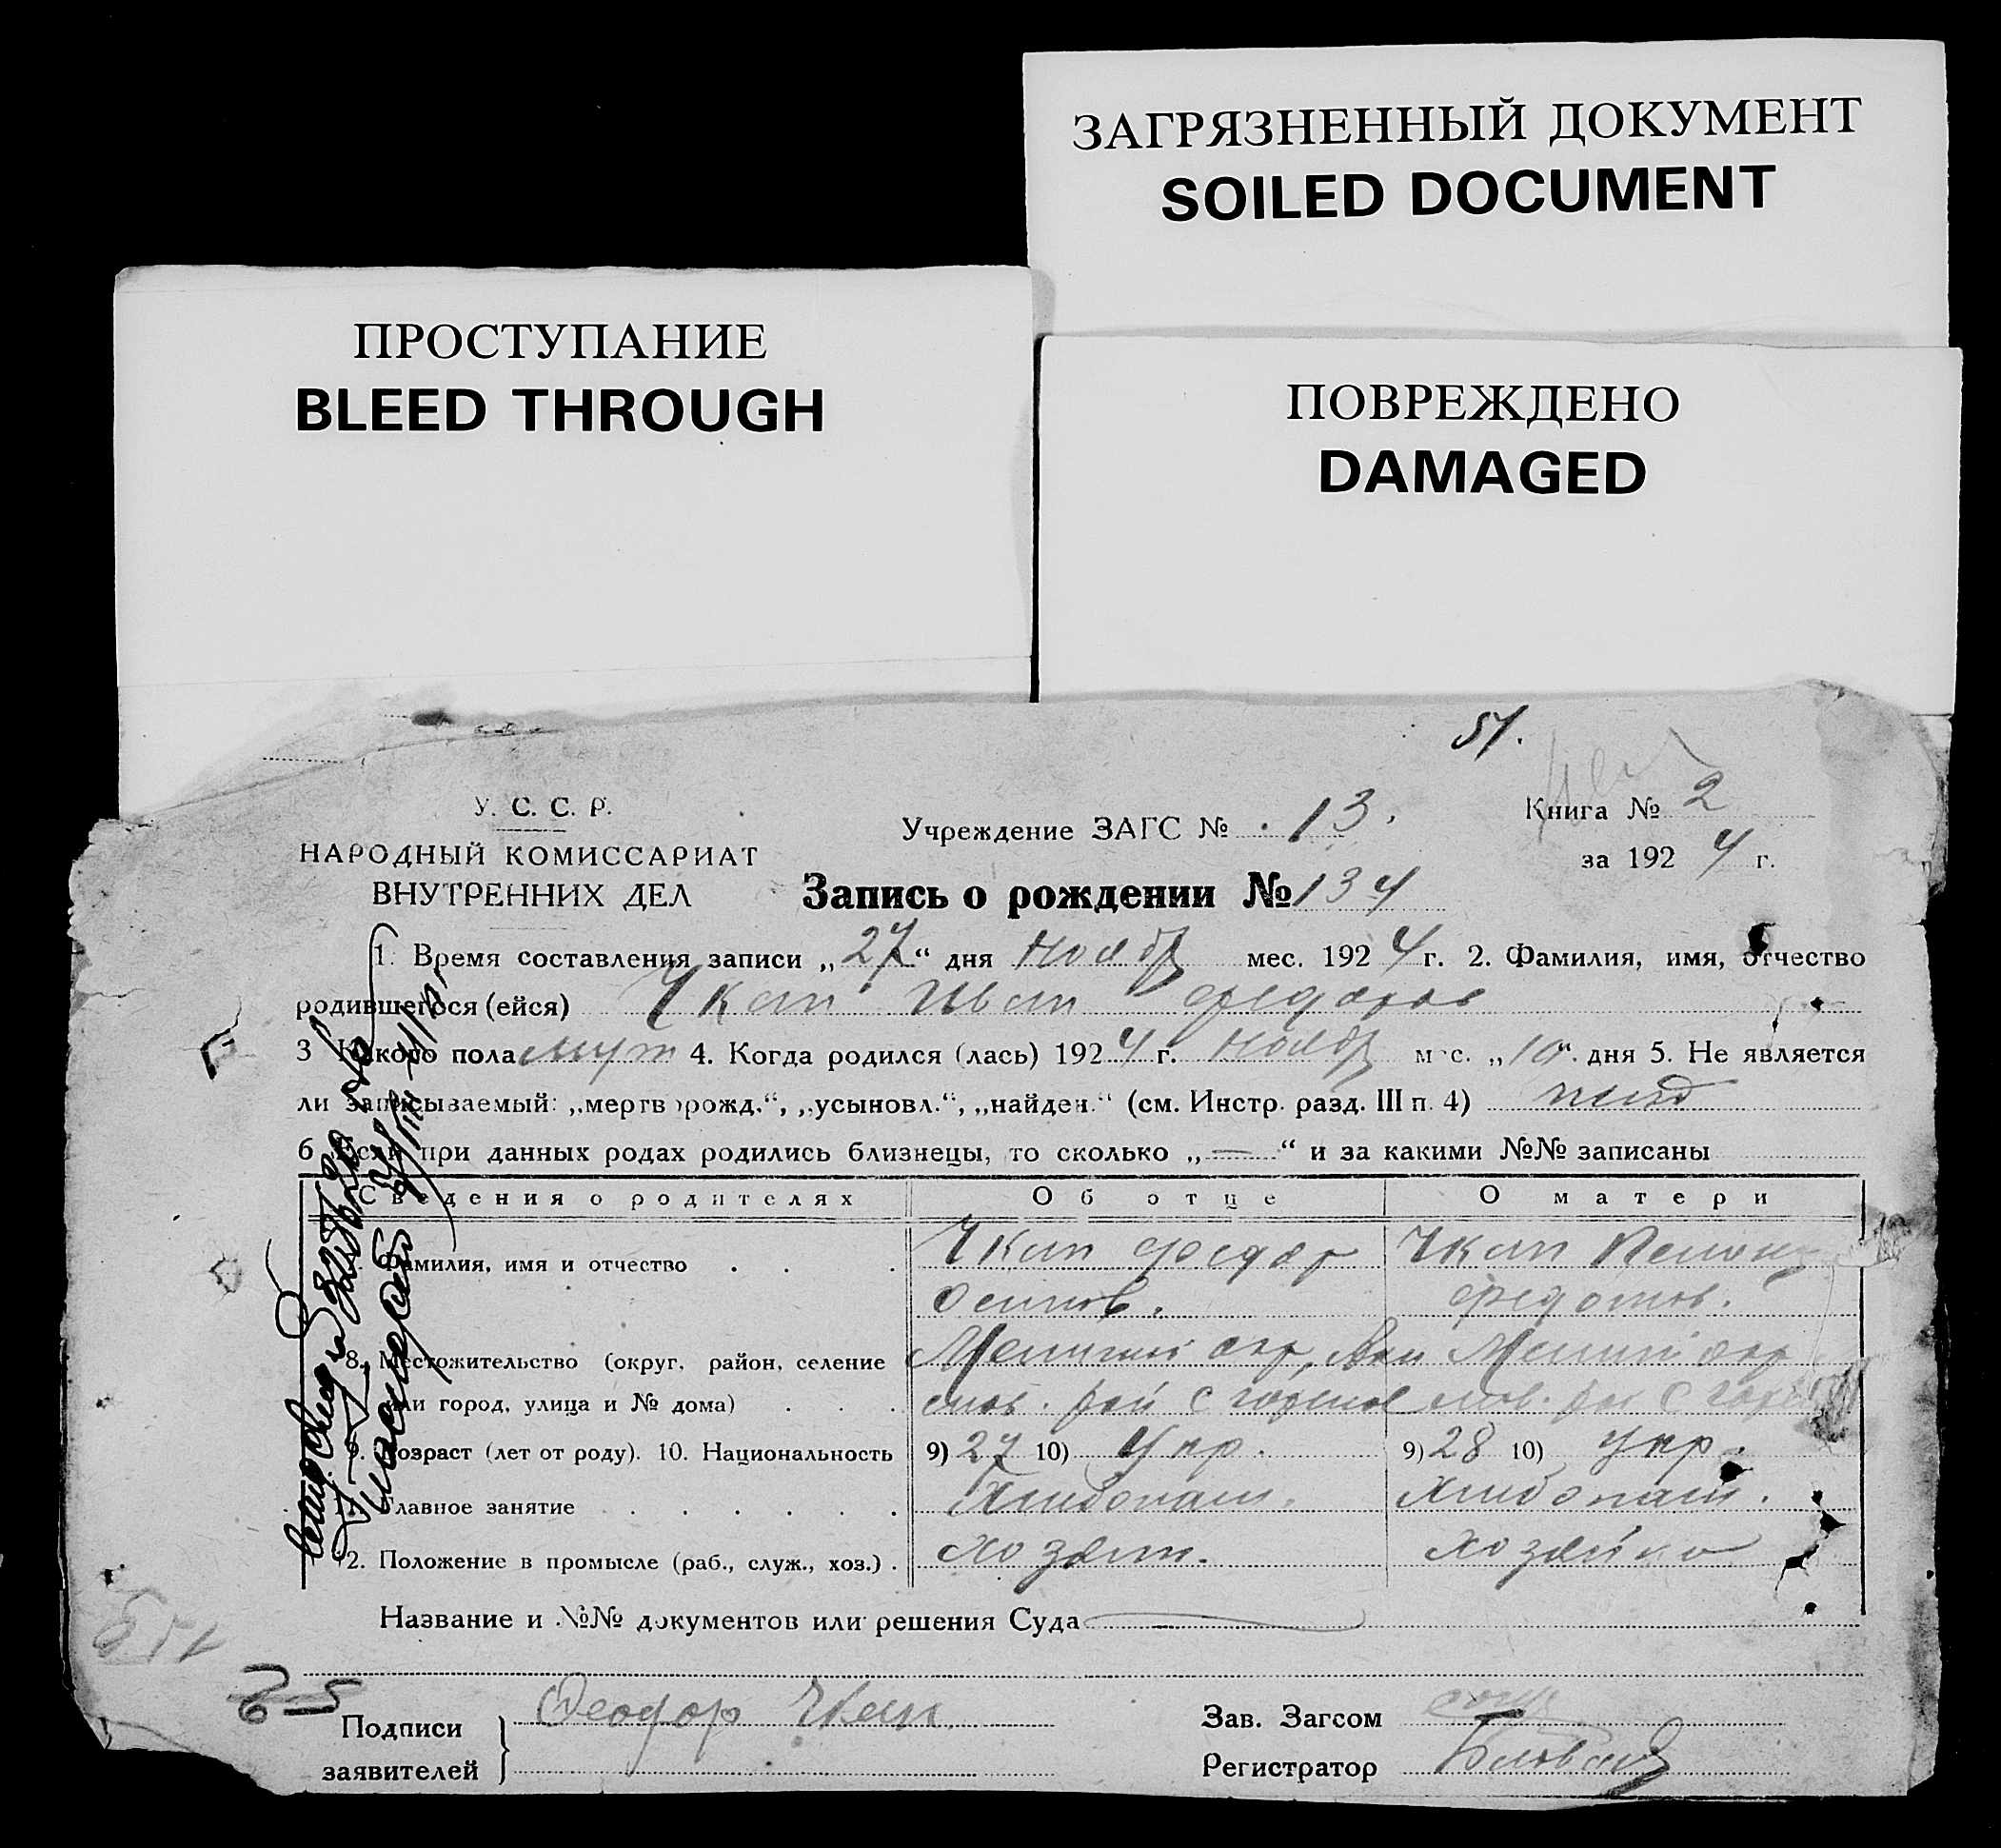 ЗАГРЯЗНЕННЫЙ ДОКУМЕНТ
SOILED DOCUMENT
ПРОСТУПАНИЕ
BLEED THROUGH
ПОВРЕЖДЕНО
DAMAGED
51.
У. С. С. Р.
НАРОДНЫЙ КОМИССАРИАТ
ВНУТРЕННИХ ДЕЛ
Учреждение ЗАГС № 13.
Книга № 2
за 1924 г.
Запись о рождении № 134
1. Время составления записи „27“ дня Ноябр мес. 1924 г. 2. Фамилия, имя, отчество
родившегося (ейся) Чкан Иван Федоров
3 Какого пола муж 4. Когда родился (лась) 1924 г. Ноябр мес. „10“ дня 5. Не является
ли записываемый: „мертворожд.“, „усыновл.“, „найден.“ (см. Инстр. разд. III п. 4)
6 Если при данных родах родились близнецы, то сколько „—“ и за какими №№ записаны
Сведения о родителях Об отце О матери
Фамилия, имя и отчество Чкан Федор Чкан
Осипов. Федотов.
8. Местожительство (округ, район, селение
или город, улица и № дома) рай с
9. Возраст (лет от роду). 10. Национальность 9) 27 10) Укр. 9) 28 10) Укр.
11. Главное занятие Хлибопаш. Хлибопаш.
12. Положение в промысле (раб., служ., хоз.) Хозяин. Хозяйка
Название и №№ документов или решения Суда
Подписи
заявителей
Феодор Чкан
Зав. Загсом
Регистратор